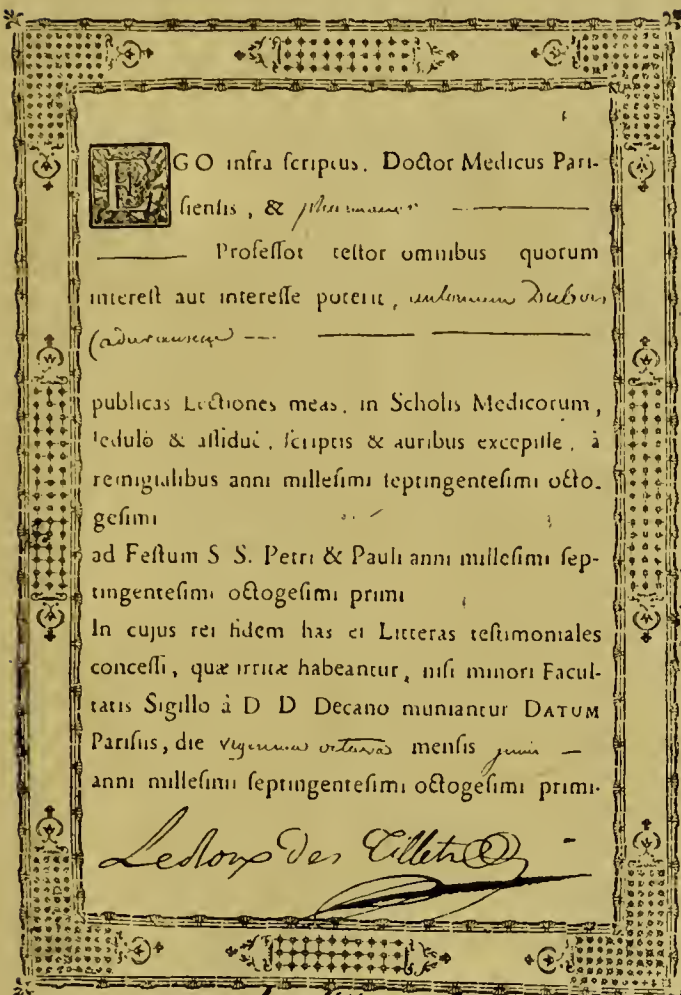 EGO infra ſcriptus, Doctor Medicus Pari-
ſienſis, &
Profeſſor teſtor omnibus quorum
intereſt aut intereſſe poterit, Dubois
publicas Lectiones meas, in Scholis Medicorum,
ſedulò & aſſiduè, ſcriptis & auribus excepiſſe, à
remigialibus anni milleſimi ſeptingenteſimi octo-
geſimi
ad Feſtum S S. Petri & Pauli anni milleſimi ſep-
tingenteſimi octogeſimi primi
In cujus rei fidem has ei Litteras teſtimoniales
conceſſi, quæ irritæ habeantur, niſi minori Facul-
tatis Sigillo à D D Decano muniantur DATUM
Pariſiis, die vigesima octava menſis junii —
anni milleſimi ſeptingenteſimi octogeſimi primi.